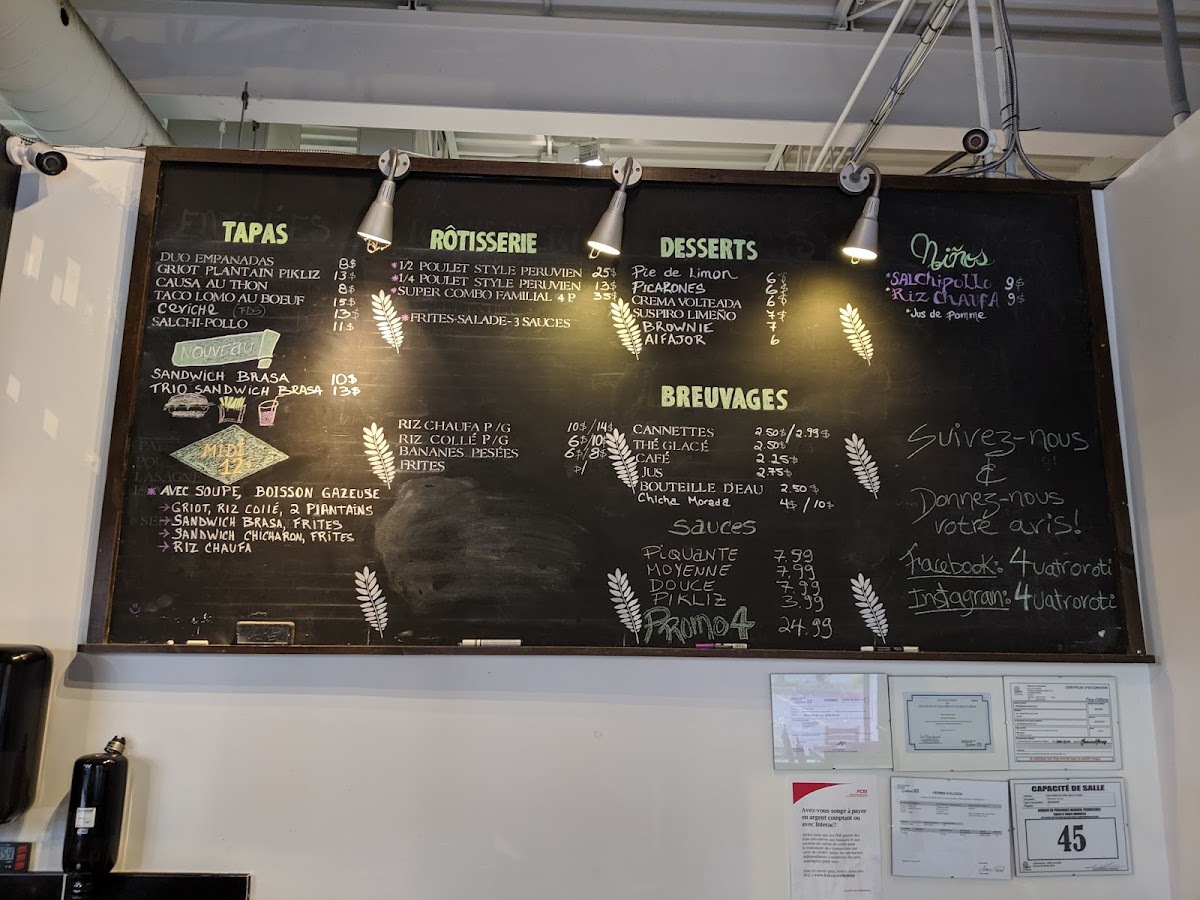 TAPAS
DUO EMPANADAS 9$
GRIOT PLANTAIN PIKLIZ 13$
CAUSA AU THON 8$
TACO LOMO AU BOEUF 15$
Ceviche (FDS) 13$
SALCHI-POLLO 11$
NOUVEAU!
SANDWICH BRASA 10$
TRIO SANDWICH BRASA 13$
MIDI
12$
* AVEC SOUPE, BOISSON GAZEUSE
→ GRIOT, RIZ COLLÉ, 2 PLANTAINS
→ SANDWICH BRASA, FRITES
→ SANDWICH CHICHARON, FRITES
→ RIZ CHAUFA
RÔTISSERIE
*1/2 POULET STYLE PERUVIEN 25$
*1/4 POULET STYLE PERUVIEN 13$
*SUPER COMBO FAMILIAL 4 P 35$
*FRITES-SALADE-3 SAUCES
RIZ CHAUFA P/G 10$/14$
RIZ COLLÉ P/G 6$/10$
BANANES PESÉES 6$/8$
FRITES
DESSERTS
Pie de Limon 6$
PICARONES 6$
CREMA VOLTEADA 6$
SUSPIRO LIMEÑO 7$
BROWNIE 7
AlFAJOR 6
BREUVAGES
CANNETTES 2.50$/2.99$
THÉ GLACÉ 2.50$
CAFÉ 2.25$
JUS 2.75$
BOUTEILLE D'EAU 2.50$
Chicha Morada 4$/10$
SAUCES
PIQUANTE 7.59
MOYENNE 7.99
DOUCE 7.99
PIKLIZ 3.99
PROMO 4 24.99
Niños
*SALChipollo 9$
RIZ CHAUFA 9$
*Jus de pomme
Suivez-nous
&
Donnez-nous
votre avis!
Facebook: 4uatroroti
Instagram: 4uatroroti
CERTIFICAT D'OCCUPATION
PERMIS D'ALCOOL
CAPACITÉ DE SALLE
45
FCEI
Avez-vous songé à payer
en argent comptant ou
avec Interac?